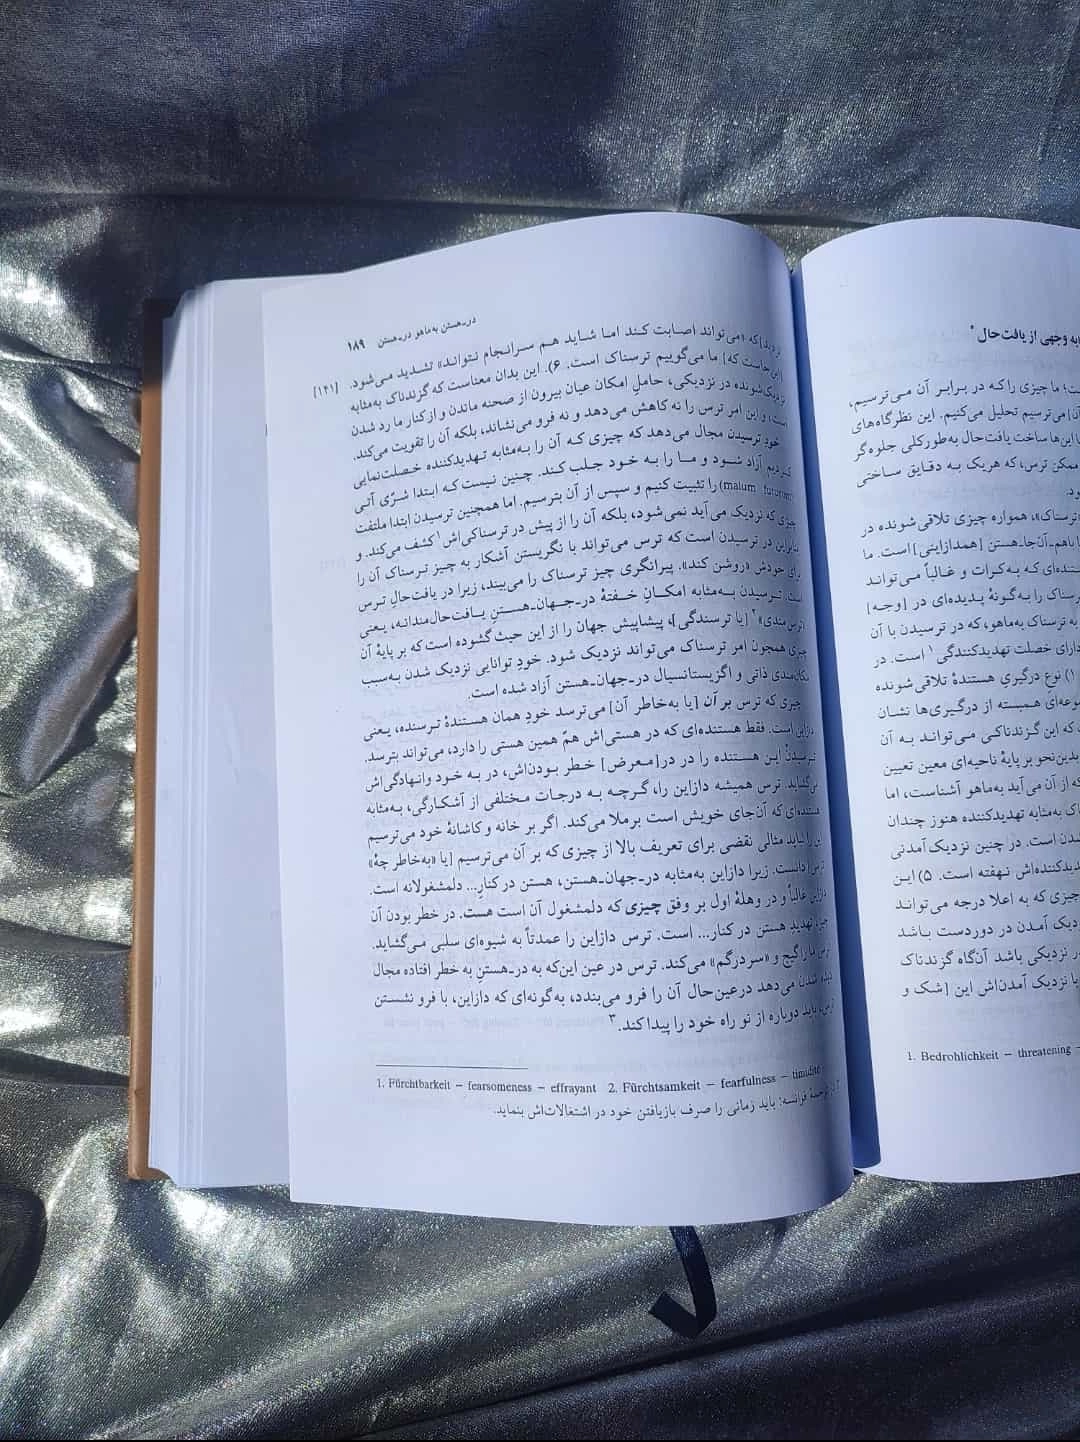 به وجهی از یافت‌حال *
ست؛ ما چیزی را که در برابر آن می‌ترسیم،
آن] می‌ترسیم تحلیل می‌کنیم. این نظرگاه‌های
این‌ها ساخت یافت‌حال به‌طورکلی جلوه‌گر
ممکن ترس، که هریک به دقایق ساختی
ود.
«ترسناک»، همواره چیزی تلاقی‌شونده در
باهم-آن‌جا-هستن [همدازاینی] است. ما
ستنده‌ای که به‌کرات و غالباً می‌تواند
ترسناک را به‌گونهٔ پدیده‌ای در [وجه]
به ترسناک به‌ماهو، که در ترسیدن با آن
دارای خصلت تهدیدکنندگی۱ است. در
۱) نوع درگیریِ هستندهٔ تلاقی‌شونده
موعه‌ای همبسته از درگیری‌ها نشان
که این گزندناکی می‌تواند به آن
بدین‌نحو بر پایهٔ ناحیه‌ای معین تعیین
که از آن می‌آید به‌ماهو آشناست، اما
ک به‌مثابه تهدیدکننده هنوز چندان
دن است. در چنین نزدیک‌آمدنی
یدکننده‌اش نهفته است. ۵) این
چیزی که به اعلا درجه می‌تواند
دیک آمدن در دوردست باشد
در نزدیکی باشد آن‌گاه گزندناک
با نزدیک آمدن‌اش این [شک و
1. Bedrohlichkeit – threatening –
در-هستن به‌ماهو در-هستن ۱۸۹
که «می‌تواند اصابت کند اما شاید هم سرانجام نتواند» تشدید می‌شود. [۱۴۱]
جاست که] ما می‌گوییم ترسناک است. ۶) این بدان معناست که گزندناک به‌مثابه
نزدیک‌شونده در نزدیکی، حاملِ امکان عیان بیرون از صحنه ماندن و از کنار ما رد شدن
است، و این امر ترس را نه کاهش می‌دهد و نه فرو می‌نشاند، بلکه آن را تقویت می‌کند.
خودِ ترسیدن مجال می‌دهد که چیزی که آن را به‌مثابه تهدیدکننده خصلت‌نمایی
کردیم آزاد شود و ما را به خود جلب کند. چنین نیست که ابتدا شرّی آتی
(malum futurum) را تثبیت کنیم و سپس از آن بترسیم. اما همچنین ترسیدن ابتدا ملتفت
چیزی که نزدیک می‌آید نمی‌شود، بلکه آن را از پیش در ترسناکی‌اش۱ کشف می‌کند. و
بنابراین در ترسیدن است که ترس می‌تواند با نگریستن آشکار به چیز ترسناک آن را
برای خودش «روشن کند». پیرانگری چیز ترسناک را می‌بیند، زیرا در یافت‌حالِ ترس
است. ترسیدن به‌مثابه امکانِ خفتهٔ در-جهان-هستنِ یافت‌حال‌مندانه، یعنی
«ترس‌مندی»۲ [یا ترسندگی]، پیشاپیش جهان را از این حیث گشوده است که بر پایهٔ آن
چیزی همچون امر ترسناک می‌تواند نزدیک شود. خودِ توانایی نزدیک شدن به‌سبب
مکان‌مندی ذاتی و اگزیستانسیال در-جهان-هستن آزاد شده است.
چیزی که ترس بر آن [یا به‌خاطر آن] می‌ترسد خودِ همان هستندهٔ ترسنده، یعنی
دازاین است. فقط هستنده‌ای که در هستی‌اش همّ همین هستی را دارد، می‌تواند بترسد.
ترسیدنْ این هستنده را در در[معرض] خطر بودن‌اش، در به خود وانهادگی‌اش
می‌گشاید. ترس همیشه دازاین را، گرچه به درجات مختلفی از آشکارگی، به‌مثابه
هستنده‌ای که آن‌جای خویش است برملا می‌کند. اگر بر خانه و کاشانهٔ خود می‌ترسیم
را نباید مثالی نقضی برای تعریف بالا از چیزی که بر آن می‌ترسیم [یا «به‌خاطر چهٔ»
ترس] دانست. زیرا دازاین به‌مثابه در-جهان-هستن، هستن در کنارِ... دلمشغولانه است.
دازاین غالباً و در وهلهٔ اول بر وفقِ چیزی که دلمشغول آن است هست. در خطر بودن آن
چیز، تهدید هستن در کنار... است. ترس دازاین را عمدتاً به شیوه‌ای سلبی می‌گشاید.
ترس ما را گیج و «سردرگم» می‌کند. ترس در عین این‌که به در-هستنِ به خطر افتاده مجال
دیده شدن می‌دهد درعین‌حال آن را فرو می‌بندد، به‌گونه‌ای که دازاین، با فرو نشستن
ترس، باید دوباره از نو راه خود را پیدا کند.۳
1. Fürchtbarkeit – fearsomeness – effrayant 2. Fürchtsamkeit – fearfulness – timidité
ترجمهٔ فرانسه: باید زمانی را صرف بازیافتن خود در اشتغالات‌اش بنماید.